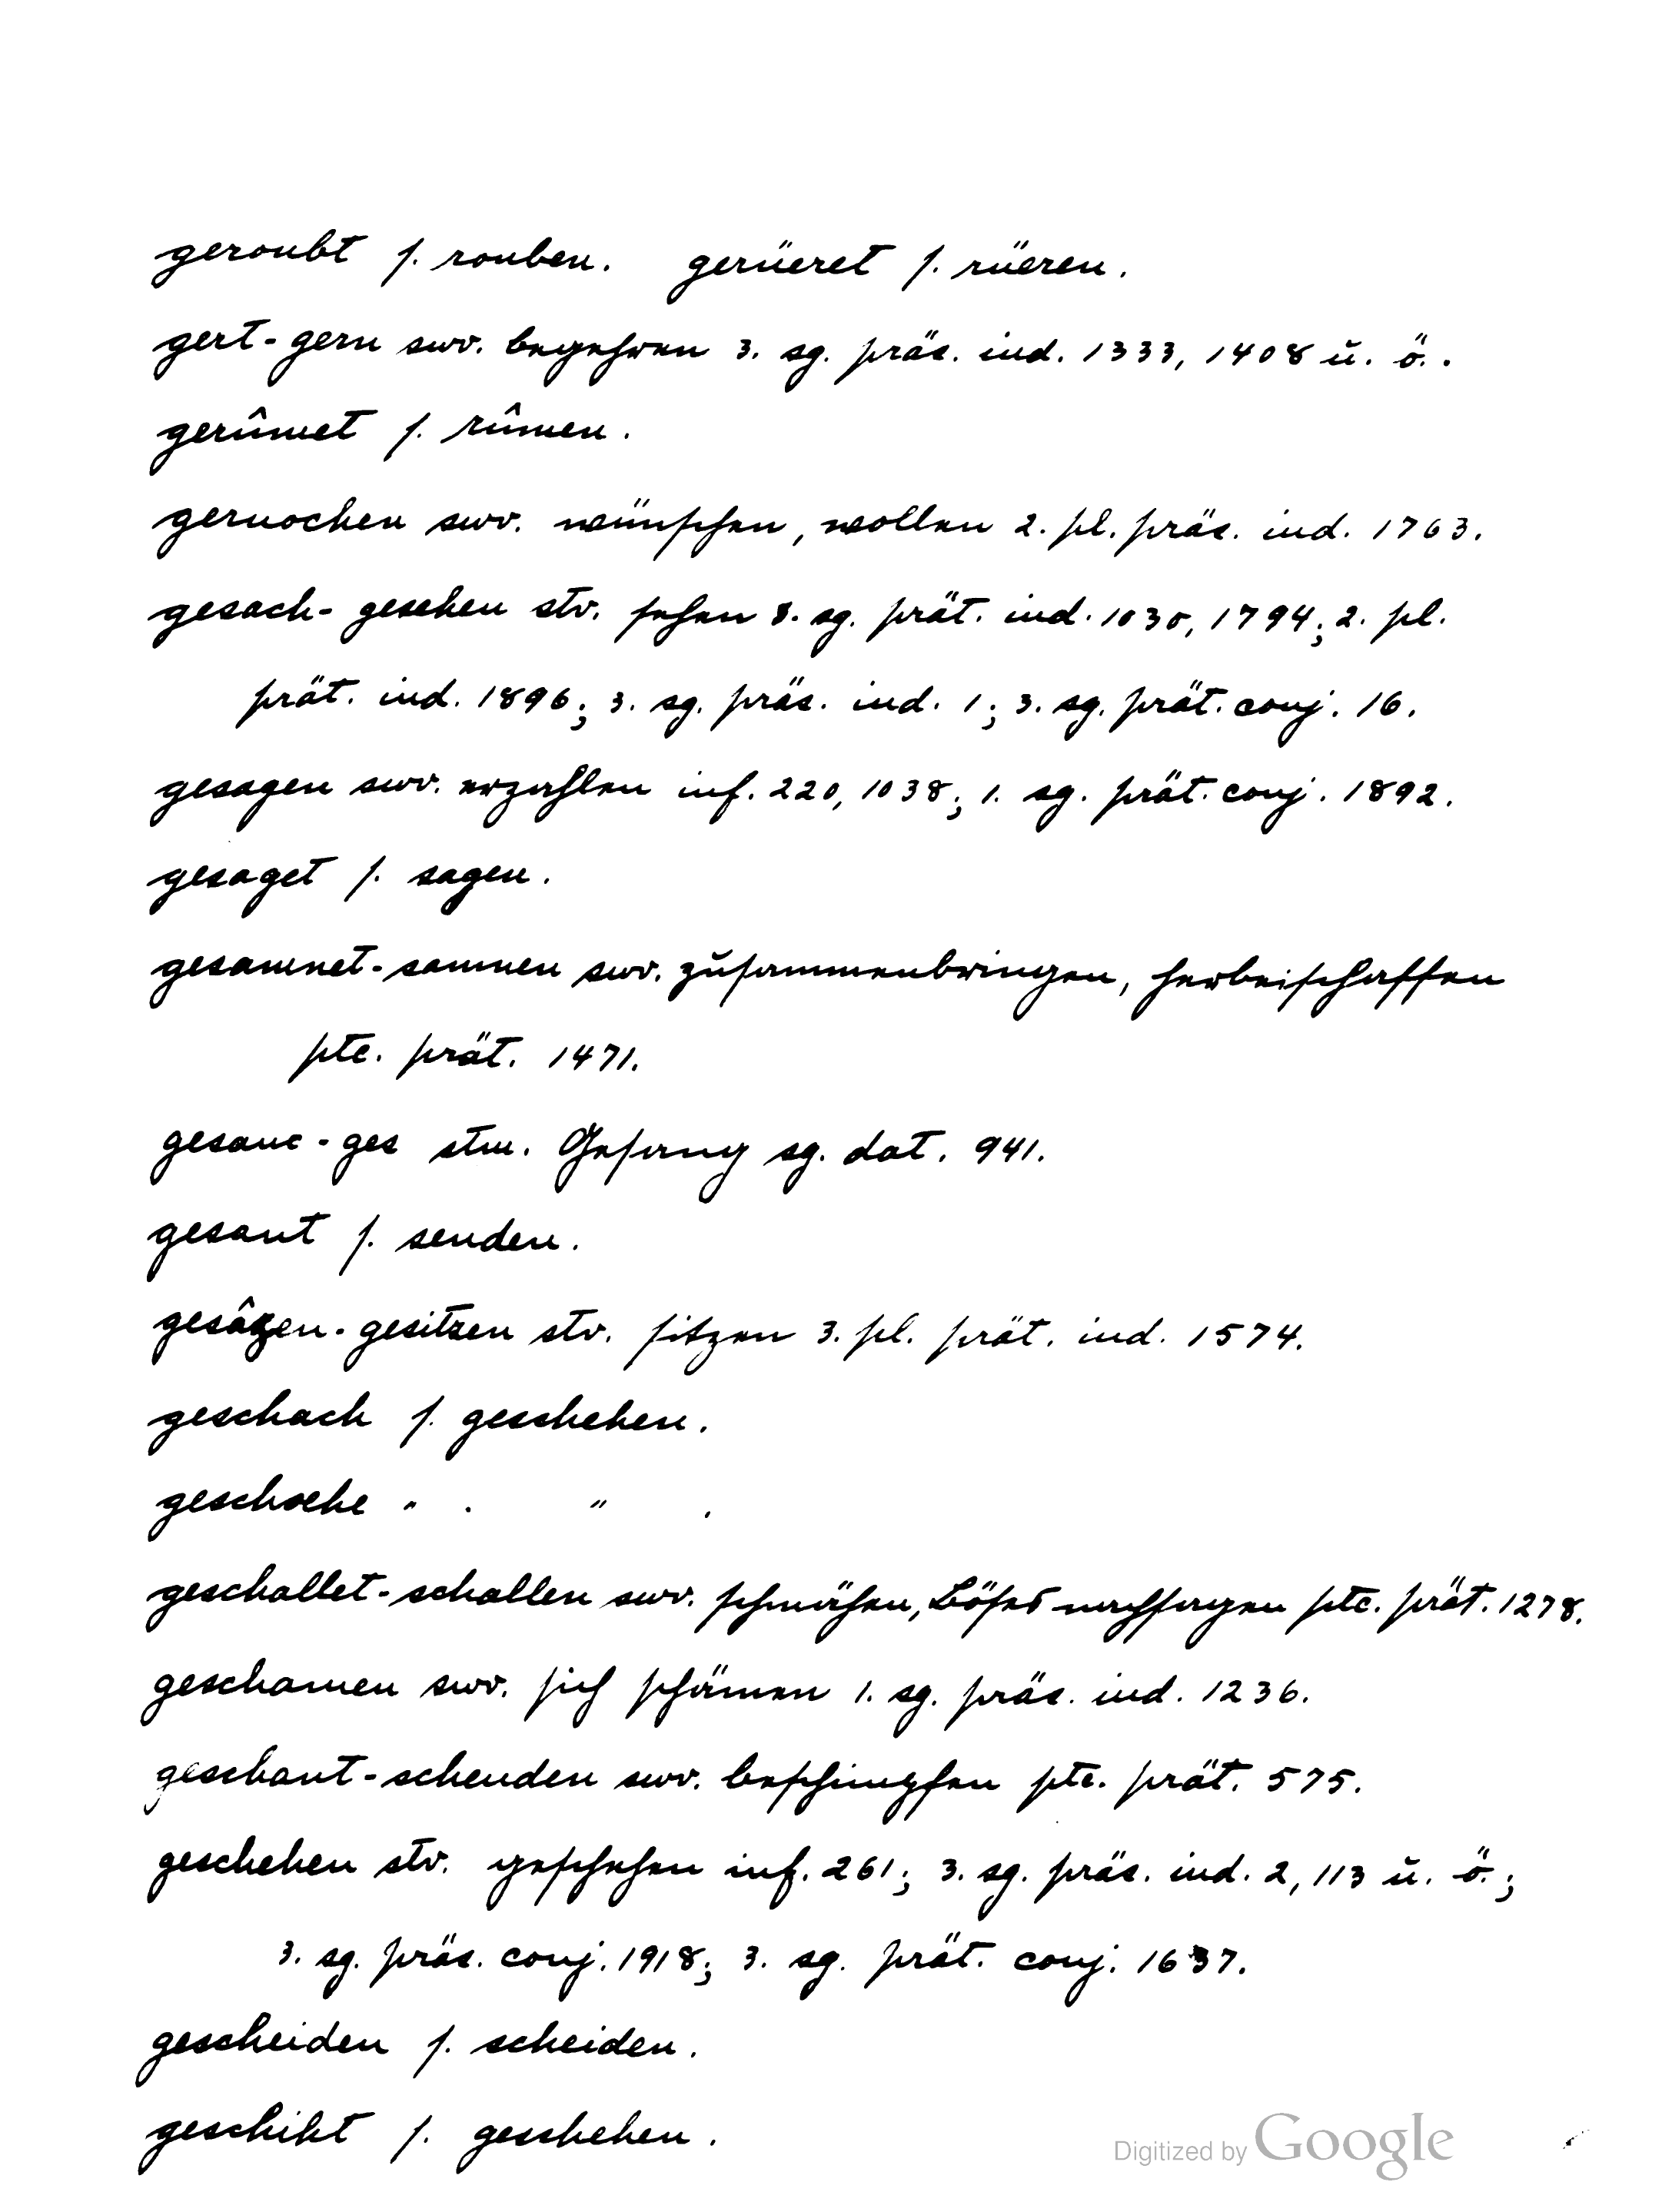 geroubt s. rouben. gerüeret s. rüeren.
gert - gern swv. begehren 3. sg. präs. ind. 1333, 1408 u. ö..
gerûmet s. rûmen.
geruochen swv. wünschen, wollen 2. pl. präs. ind. 1763.
gesach - gesehen stv. sehen 3. sg. prät. ind. 1030, 1794; 2. pl.
prät. ind. 1896; 3. sg. präs. ind. 1; 3. sg. prät. conj. 16.
gesagen swv. erzahlen inf. 220, 1038; 1. sg. prät. conj. 1892.
gesaget s. sagen.
gesamnet - samnen swv. zusammenbringen, herbeischaffen
ptc. prät. 1471.
gesanc - ges stm. Gesang sg. dat. 941.
gesant s. senden.
gesâzen - gesitzen stv. sitzen 3. pl. prät. ind. 1574.
geschach s. geschehen.
geschæhe " . " .
geschallet - schallen swv. schmähen, Böses nachsagen ptc. prät. 1278.
geschamen swv. sich schämen 1. sg. präs. ind. 1236.
geschant - schenden swv. beschimpfen ptc. prät. 575.
geschehen stv. geschehen inf. 261; 3. sg. präs. ind. 2, 113 u. ö.;
3. sg. präs. conj. 1918; 3. sg. prät. conj. 1637.
gescheiden s. scheiden.
geschiht s. geschehen.
Digitized by Google